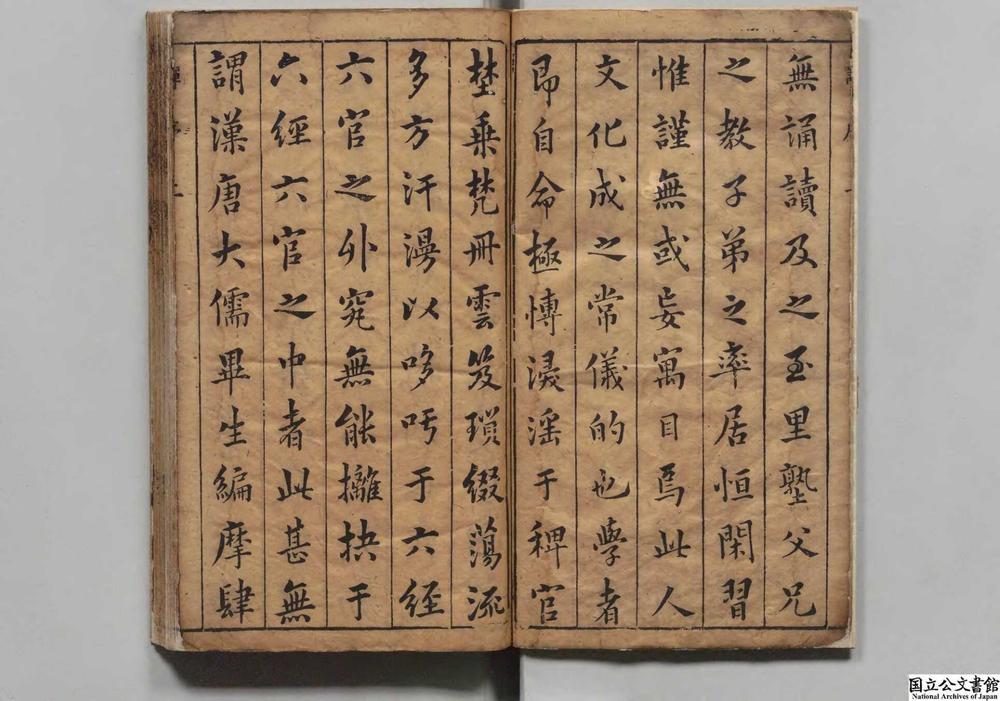 無誦讀及之至里塾父兄
之教子弟之率居恒閑習
惟謹無或妄寓目焉此人
文化成之常儀的也學者
即自命極愽浸淫于稗官
埜乗梵冊雲笈瑣綴蕩流
多方汗漫以哆吁于六經
六官之外究無能攡抉于
六經六官之中者此甚無
謂漢唐大儒畢生編摩肆
国立公文書館
National Archives of Japan